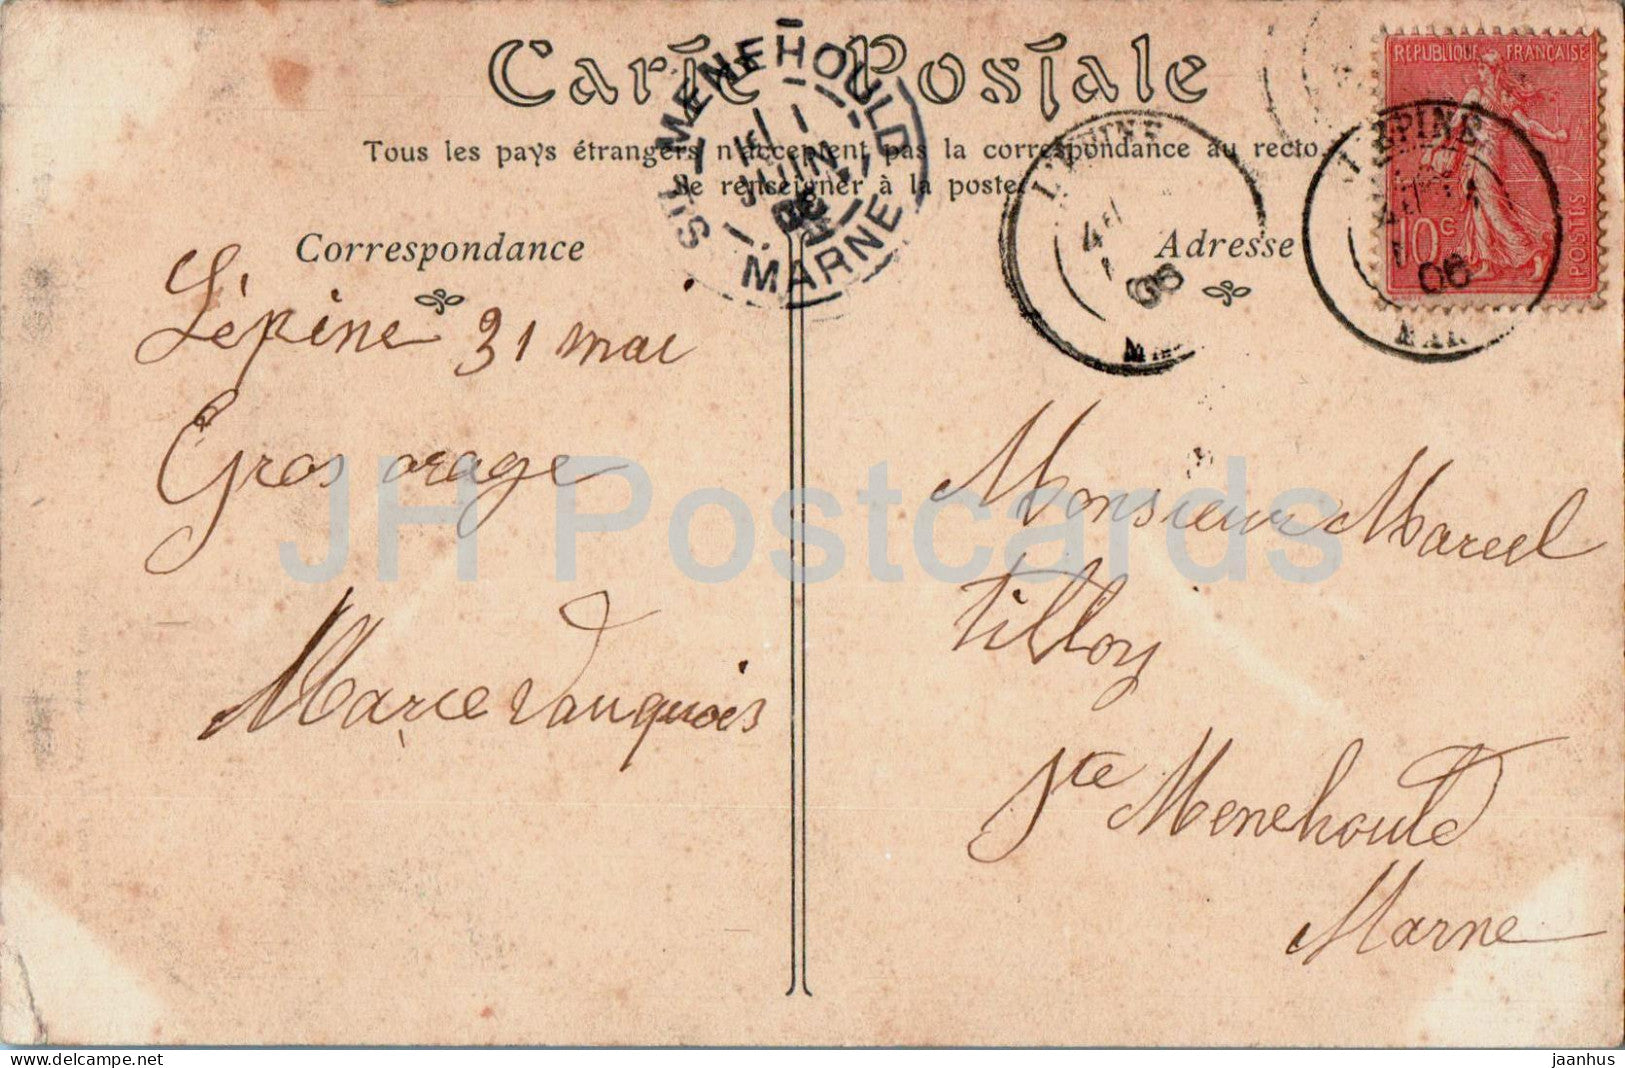 Carte Postale
Tous les pays étrangers n'acceptent pas la correspondance au recto
Se renseigner à la poste
Correspondance
Adresse
STE MENEHOULD
JUIN
06
MARNE
L'EPINE
4E
06
L'EPINE
4E
06
MAR
REPUBLIQUE FRANÇAISE
10c
POSTES
Lépine 31 mai
Gros orage
Marce Vauquois
Monsieur Marcel
Tilloy
Ste Menehould
Marne
JH Postcards
jaanhus
DELCAMPE.NET